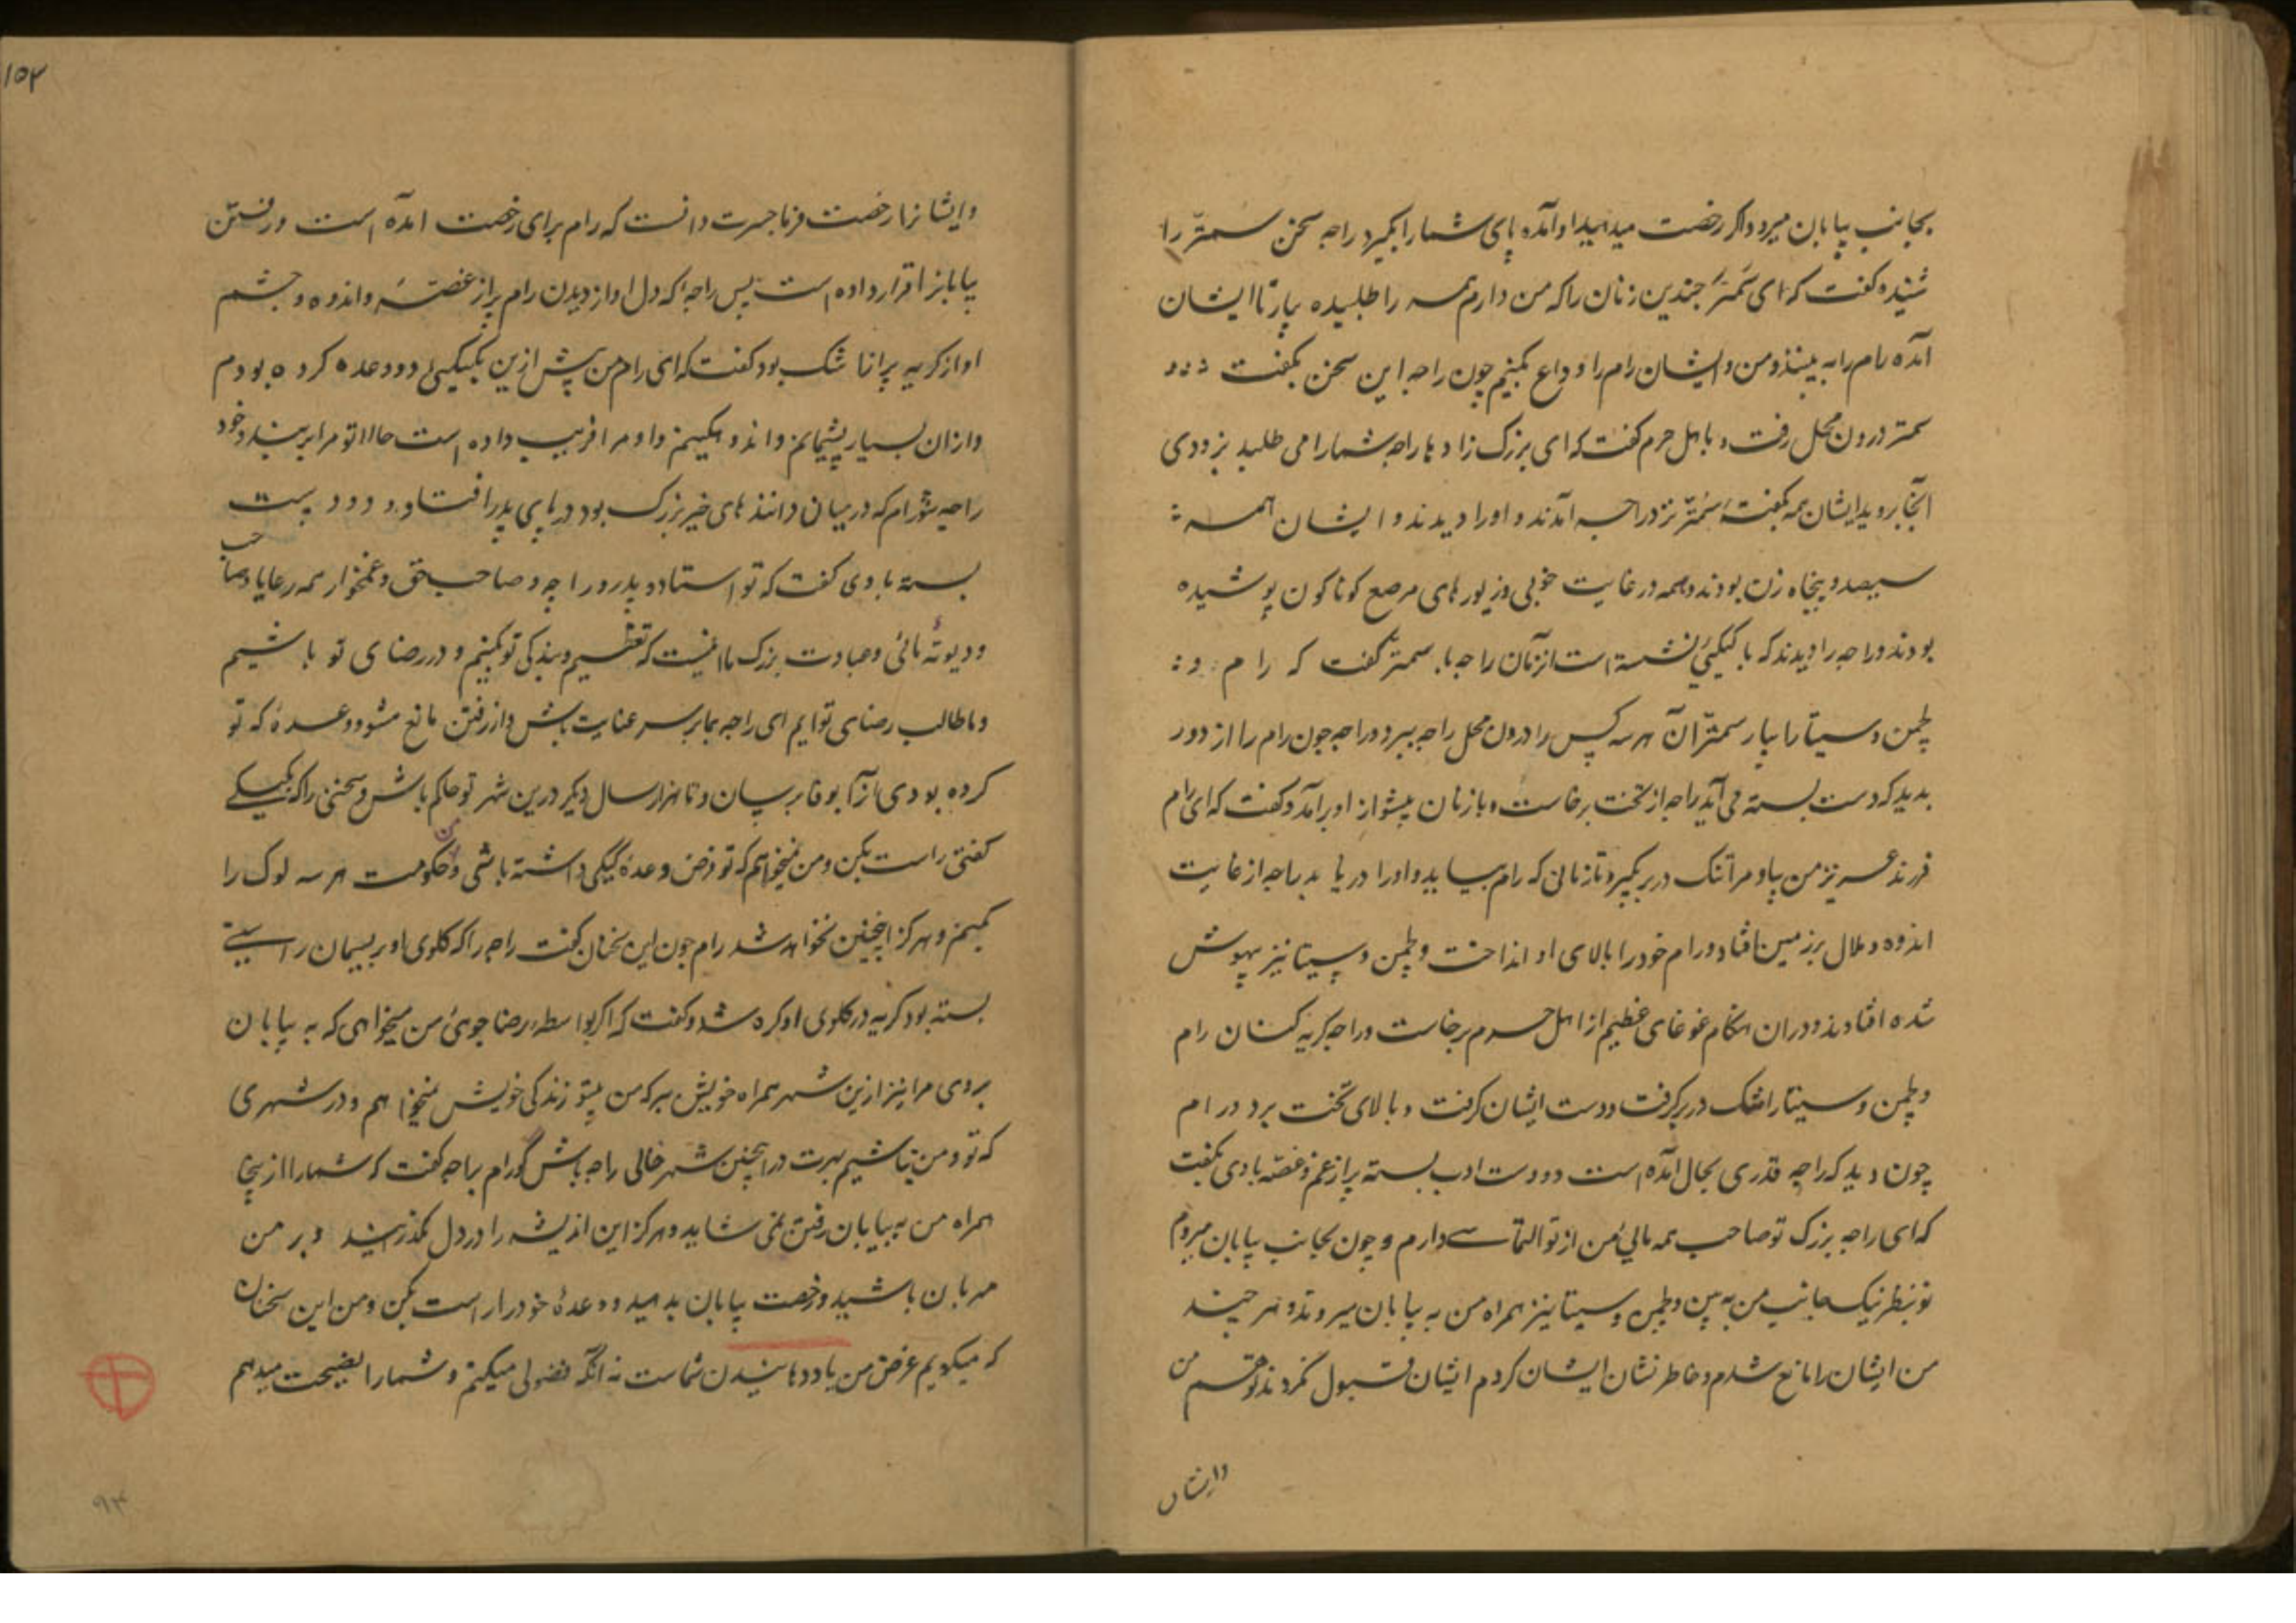 بجانب بیابان میرود و اگر رخصت میدهید او آمده پای شما را بگیرد راجه سخن سمنتر را
شنیده گفت که ای سمنتر چندین زنان را که من دارم همه را طلبیده بیار تا ایشان
آمده رام را به بینند و من و ایشان رام را وداع بکنیم چون راجه این سخن بگفت
سمنتر درون محل رفت و با اهل حرم گفت که ای بزرگ زادها راجه شما را می طلبد بزودی
آنجا بروید ایشان همه بگفتهٔ سمنتر نزد راجه آمدند و او را دیدند و ایشان همه
سیصد و پنجاه زن بودند و همه در غایت خوبی و زیورهای مرصع کوناکون پوشیده
بودند و راجه را دیدند که با کیکیی نشسته است از آن راجه با سمنتر گفت که رام و
لچمن و سیتا را بیار سمنتر آن هر سه کس را درون محل راجه ببرد و راجه چون رام را از دور
بدید که دست بسته می آید راجه از تخت برخاست و با زنان پیشواز او برآمد و گفت که ای رام
فرزند عزیز من بیا و مرا تنک در بر بگیر و تا زمانی که رام بیاید و او را دریابد راجه از غایت
اندوه و ملال بر زمین افتاد و رام خود را بالای او انداخت و لچمن و سیتا نیز بیهوش
شده افتادند و در آن هنگام غوغای عظیم از اهل حرم برخاست و راجه کریه کنان رام
و لچمن و سیتا را تنک در بر گرفت و دست ایشان گرفت و بالای تخت برد و رام
چون دید که راجه قدری بحال آمده است دو دست ادب بسته پر از غم و غصه با وی بگفت
که ای راجه بزرگ تو صاحب همه مایی من از تو التماسی دارم و چون بجانب بیابان میروم
تو بنظر نیک بجانب من به بین و لچمن و سیتا نیز همراه من به بیابان میروند و هر چند
من ایشان را مانع شدم و خاطر نشان ایشان کردم ایشان قبول نکردند تو قسم من
و ایشان
۱۵۲
و ایشانرا رخصت فرما جسرت دانست که رام برای رخصت آمده است و رفتن
بیابانرا قرار داده است پس راجه که دل او از دیدن رام پر از غصه و اندوه و چشم
او از کریه پر از اشک بود گفت که ای رام من پیش ازین بکیکیی دو وعده کرده بودم
و از آن بسیار پشیمانم و اندوهگینم و او مرا فریب داده است حالا تو مرا بربند و خود
راجه شو رام که در میان دانندهای خیر بزرگ بود در پای پدر افتاد و دو دست
بسته با وی گفت که تو استاد و پدر و راجه و صاحب حق و غمخوار همه رعایا و صاحب
و دیوتهٔ مائی و عبادت بزرگ ما اینست که تعظیم و بندگی تو بکنیم و در رضای تو باشیم
و ما طالب رضای تو ایم ای راجه بما بر سر عنایت باش و از رفتن مانع مشو و وعدهٔ که تو
کرده بودی آنرا بوفا برسان و تا هزار سال دیکر درین شهر تو حاکم باش و سخنی را که بکیکیی
گفتی راست بکن و من نمیخواهم که تو قرض وعدهٔ کیکیی داشته باشی و من حکومت هر سه لوک را
بکنم و هرگز اینچنین نخواهد شد رام چون این سخنان گفت راجه را که کلوی او بریسمان راستی
بسته بود کریه در کلوی او کره شد و گفت که اگر بواسطه رضاجوئی من میخواهی که به بیابان
بروی مرا نیز ازین شهر همراه خویش ببر که من بیتو زندگی خویش نمیخواهم و در شهری
که تو و من نباشیم بهرت در اینچنین شهر خالی راجه باش گو رام براجه گفت که شما را از اینجا
همراه من به بیابان رفتن نمی شاید و هرگز این اندیشه را در دل مگذرانید و بر من
مهربان باشید و رخصت بیابان بدهید و وعدهٔ خود را راست بکن و من این سخنان
که میگویم غرض من یاددهانیدن شماست نه آنکه فضولی میکنم و شما را نصیحت میدهم
۹۴